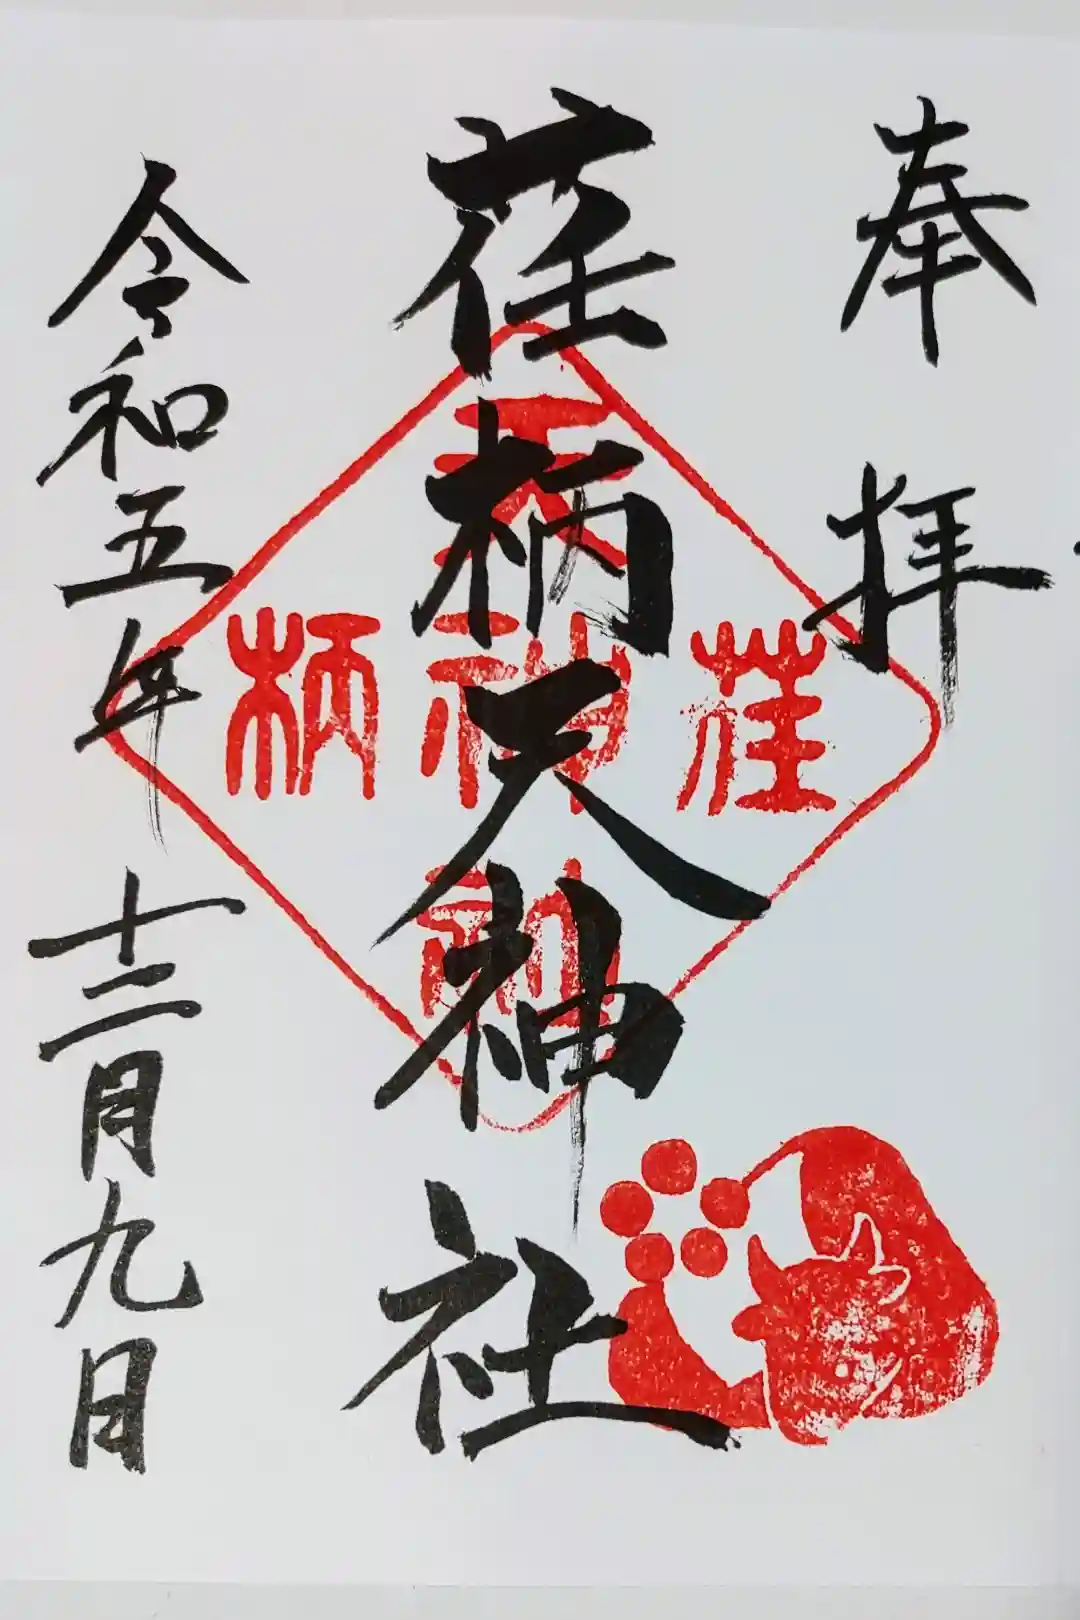 奉拝
荏柄天神社
令和五年十二月九日
天
荏神柄
社